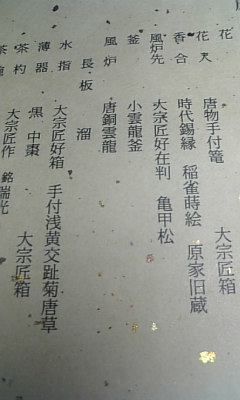 花
花入 唐物手付籠 大宗匠箱
香合 時代錫縁 稲雀蒔絵 原家旧蔵
風炉先 大宗匠好在判 亀甲松
釜 小雲龍釜
風炉 唐銅雲龍
長板 溜
水指 大宗匠好箱 手付浅黄交趾菊唐草
薄器 黒 中棗 大宗匠箱
茶杓 大宗匠作 銘 瑞光
茶碗